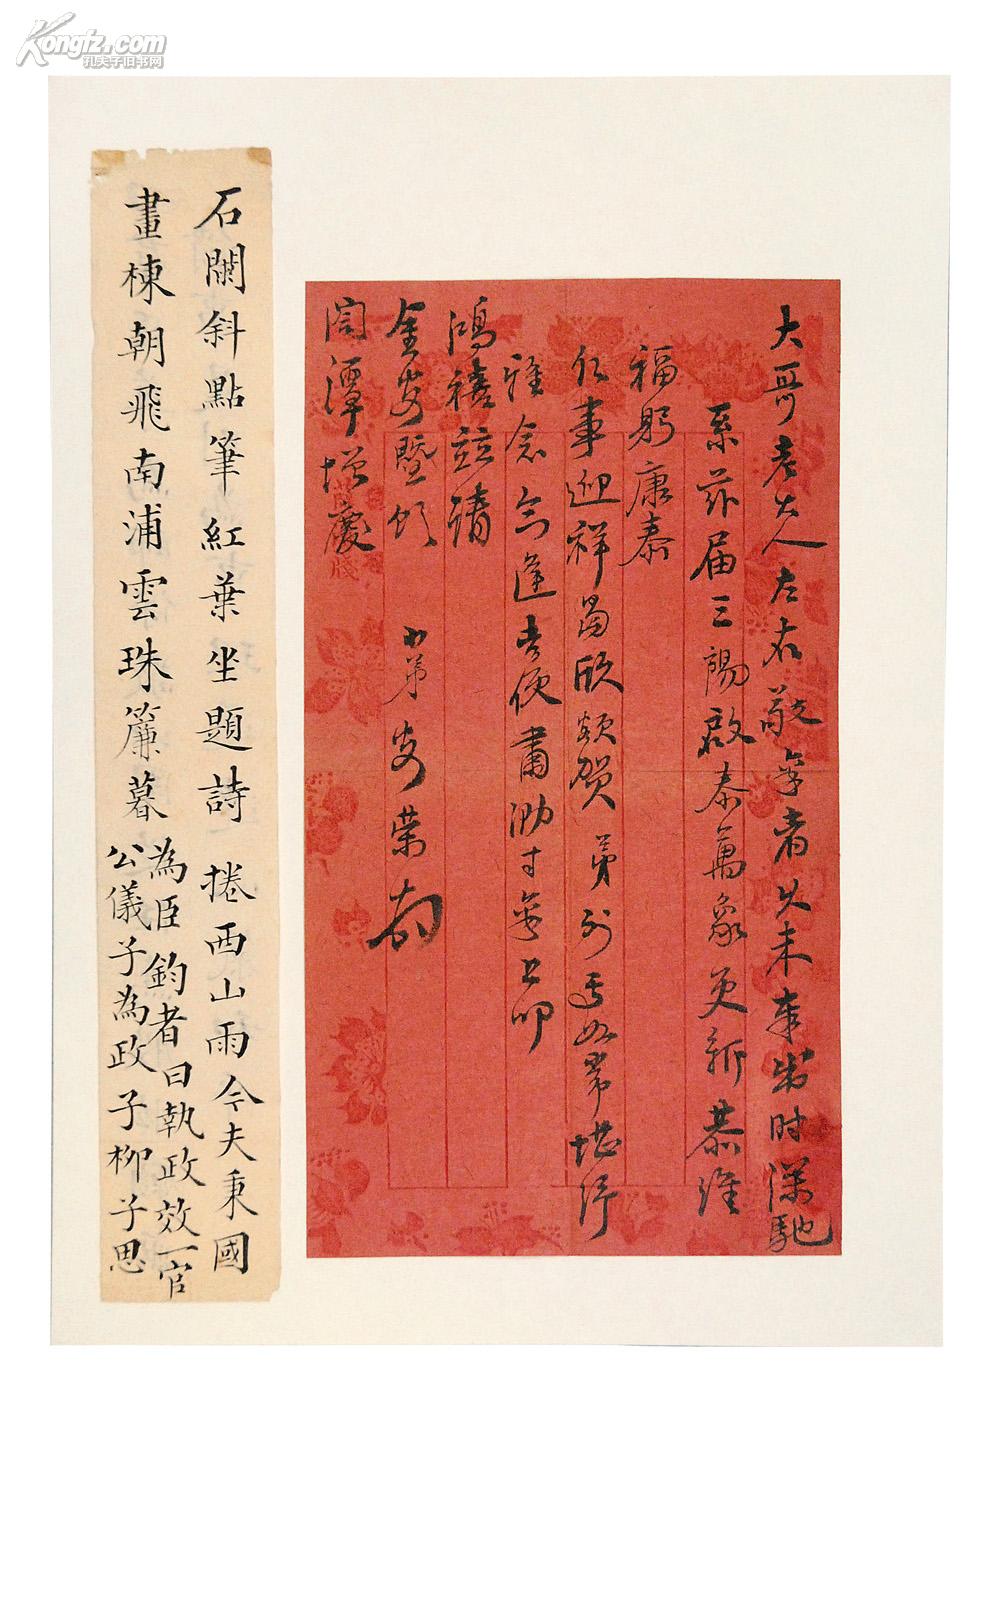 Kongfz.com
孔夫子旧书网
大哥老大人左右敬稟者久未奉書时深馳
系茲届三陽啟泰萬象更新恭維
福躬康泰
仁事迎祥曷勝頌賀弟刻下如常堪紓
雅念茲逢吉便肅泐寸稟上叩
鴻禧並請
金安暨頌
閤潭增慶
小弟安荣
石闌斜點筆紅葉坐題詩捲西山雨今夫秉國
畫棟朝飛南浦雲珠簾暮為臣鈞者曰執政效一官
公儀子為政子柳子思